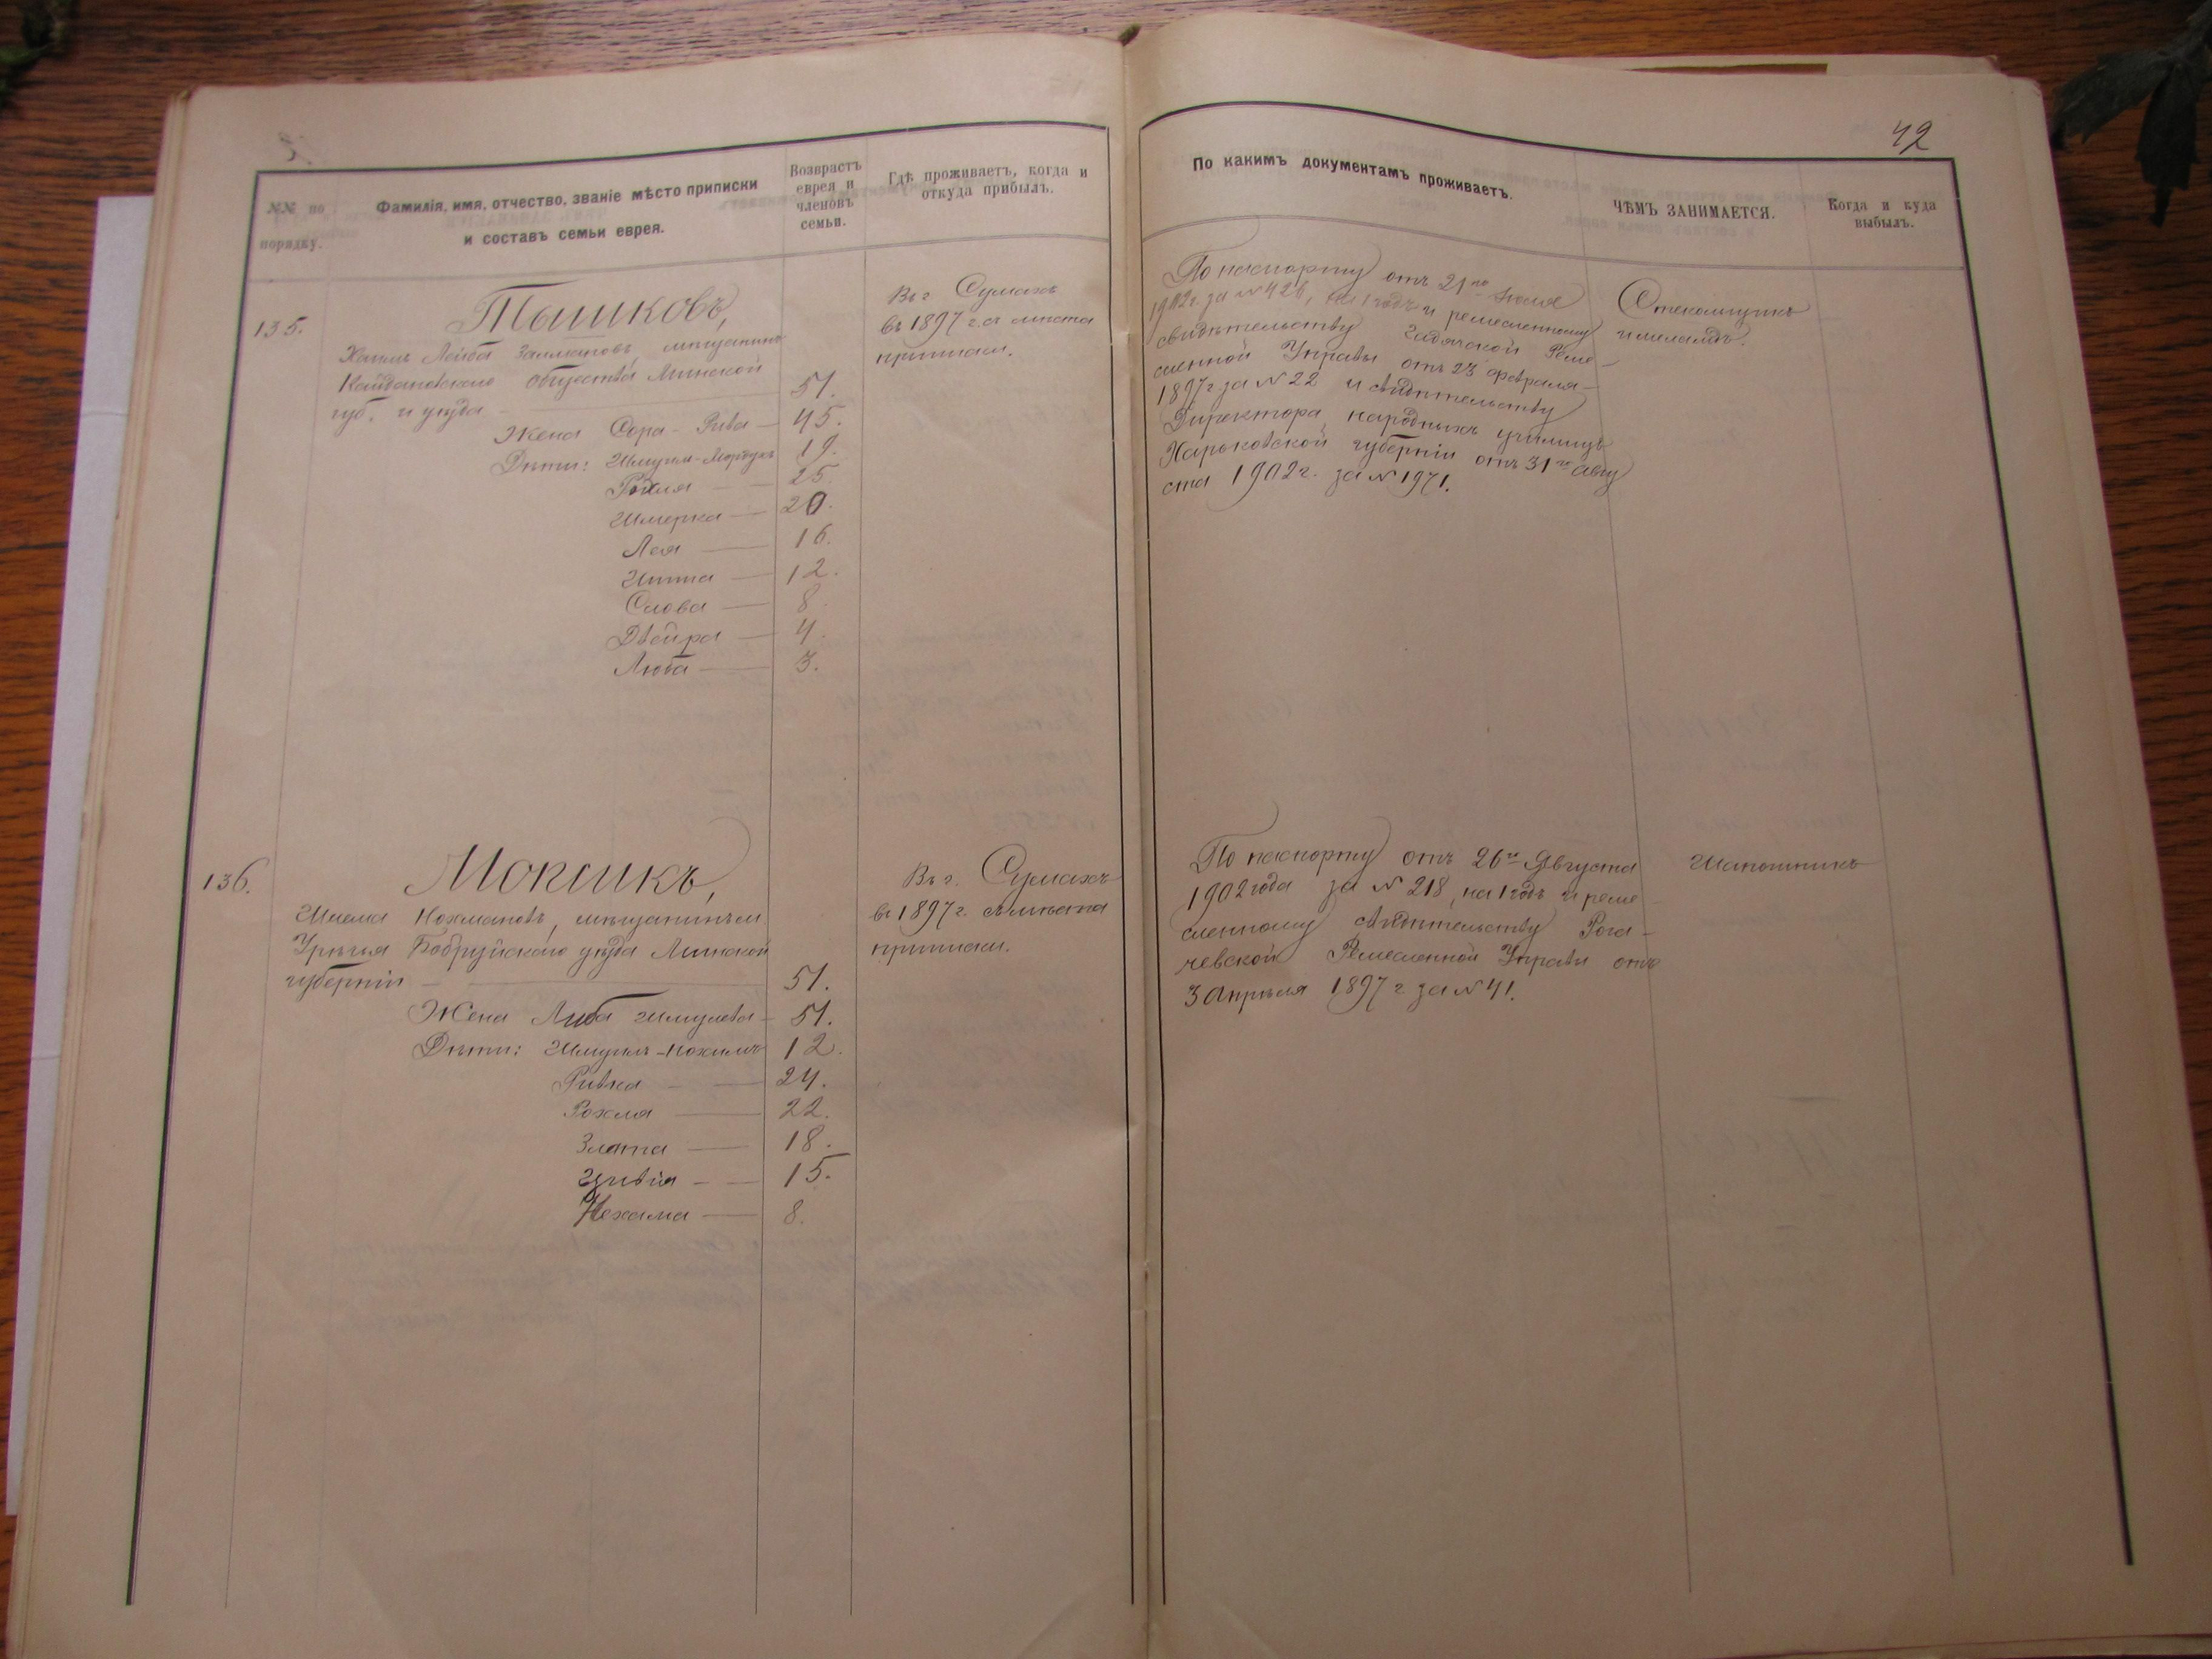 42
№№ по порядку.
Фамилія, имя, отчество, званіе мѣсто приписки
и составъ семьи еврея.
Возврастъ
еврея и
членовъ
семьи.
Гдѣ проживаетъ, когда и
откуда прибылъ.
По какимъ документамъ проживаетъ.
ЧѢМЪ ЗАНИМАЕТСЯ.
Когда и куда
выбылъ.
135.
Ташковъ,
Хаимъ Лейба Залмановъ, мѣщанинъ
Койдановскаго общества Минской
губ. и уѣзда 51.
Жена Сора-Рива 45.
Дѣти: Шмуил-Мордухъ 19.
Рохля 25.
Шмерка 20.
Лея 16.
Итта 12.
Слова 8.
Двейра 4.
Люба 3.
Въ г. Сумахъ
въ 1897 г. съ мѣста
приписки.
По паспорту отъ 21го Іюля
1902 г. за № 426, на 1 годъ и ремесленному
свидѣтельству Гадячской Реме-
сленной Управы отъ 23 февраля
1897 г. за № 22 и свидѣтельству
Директора народныхъ училищъ
Харьковской губерніи отъ 31го Авгу
ста 1902 г. за № 1971.
Стекольщикъ
и меламдъ.
136.
Мопсикъ,
Шлема Нохмановъ, мѣщанинъ м.
Урѣчья Бобруйскаго уѣзда Минской
губерніи 51.
Жена Либа Шмулева 51.
Дѣти: Шмуилъ-Нохимъ 12.
Ривка 24.
Рохля 22.
Злата 18.
Цивія 15.
Нехама 8.
Въ г. Сумахъ
въ 1897 г. съ мѣста
приписки.
По паспорту отъ 26го Августа
1902 года за № 218, на 1 годъ и реме
сленному свидѣтельству Рога-
чевской Ремесленной Управы отъ
3 Апрѣля 1897 г. за № 41.
Шапошникъ